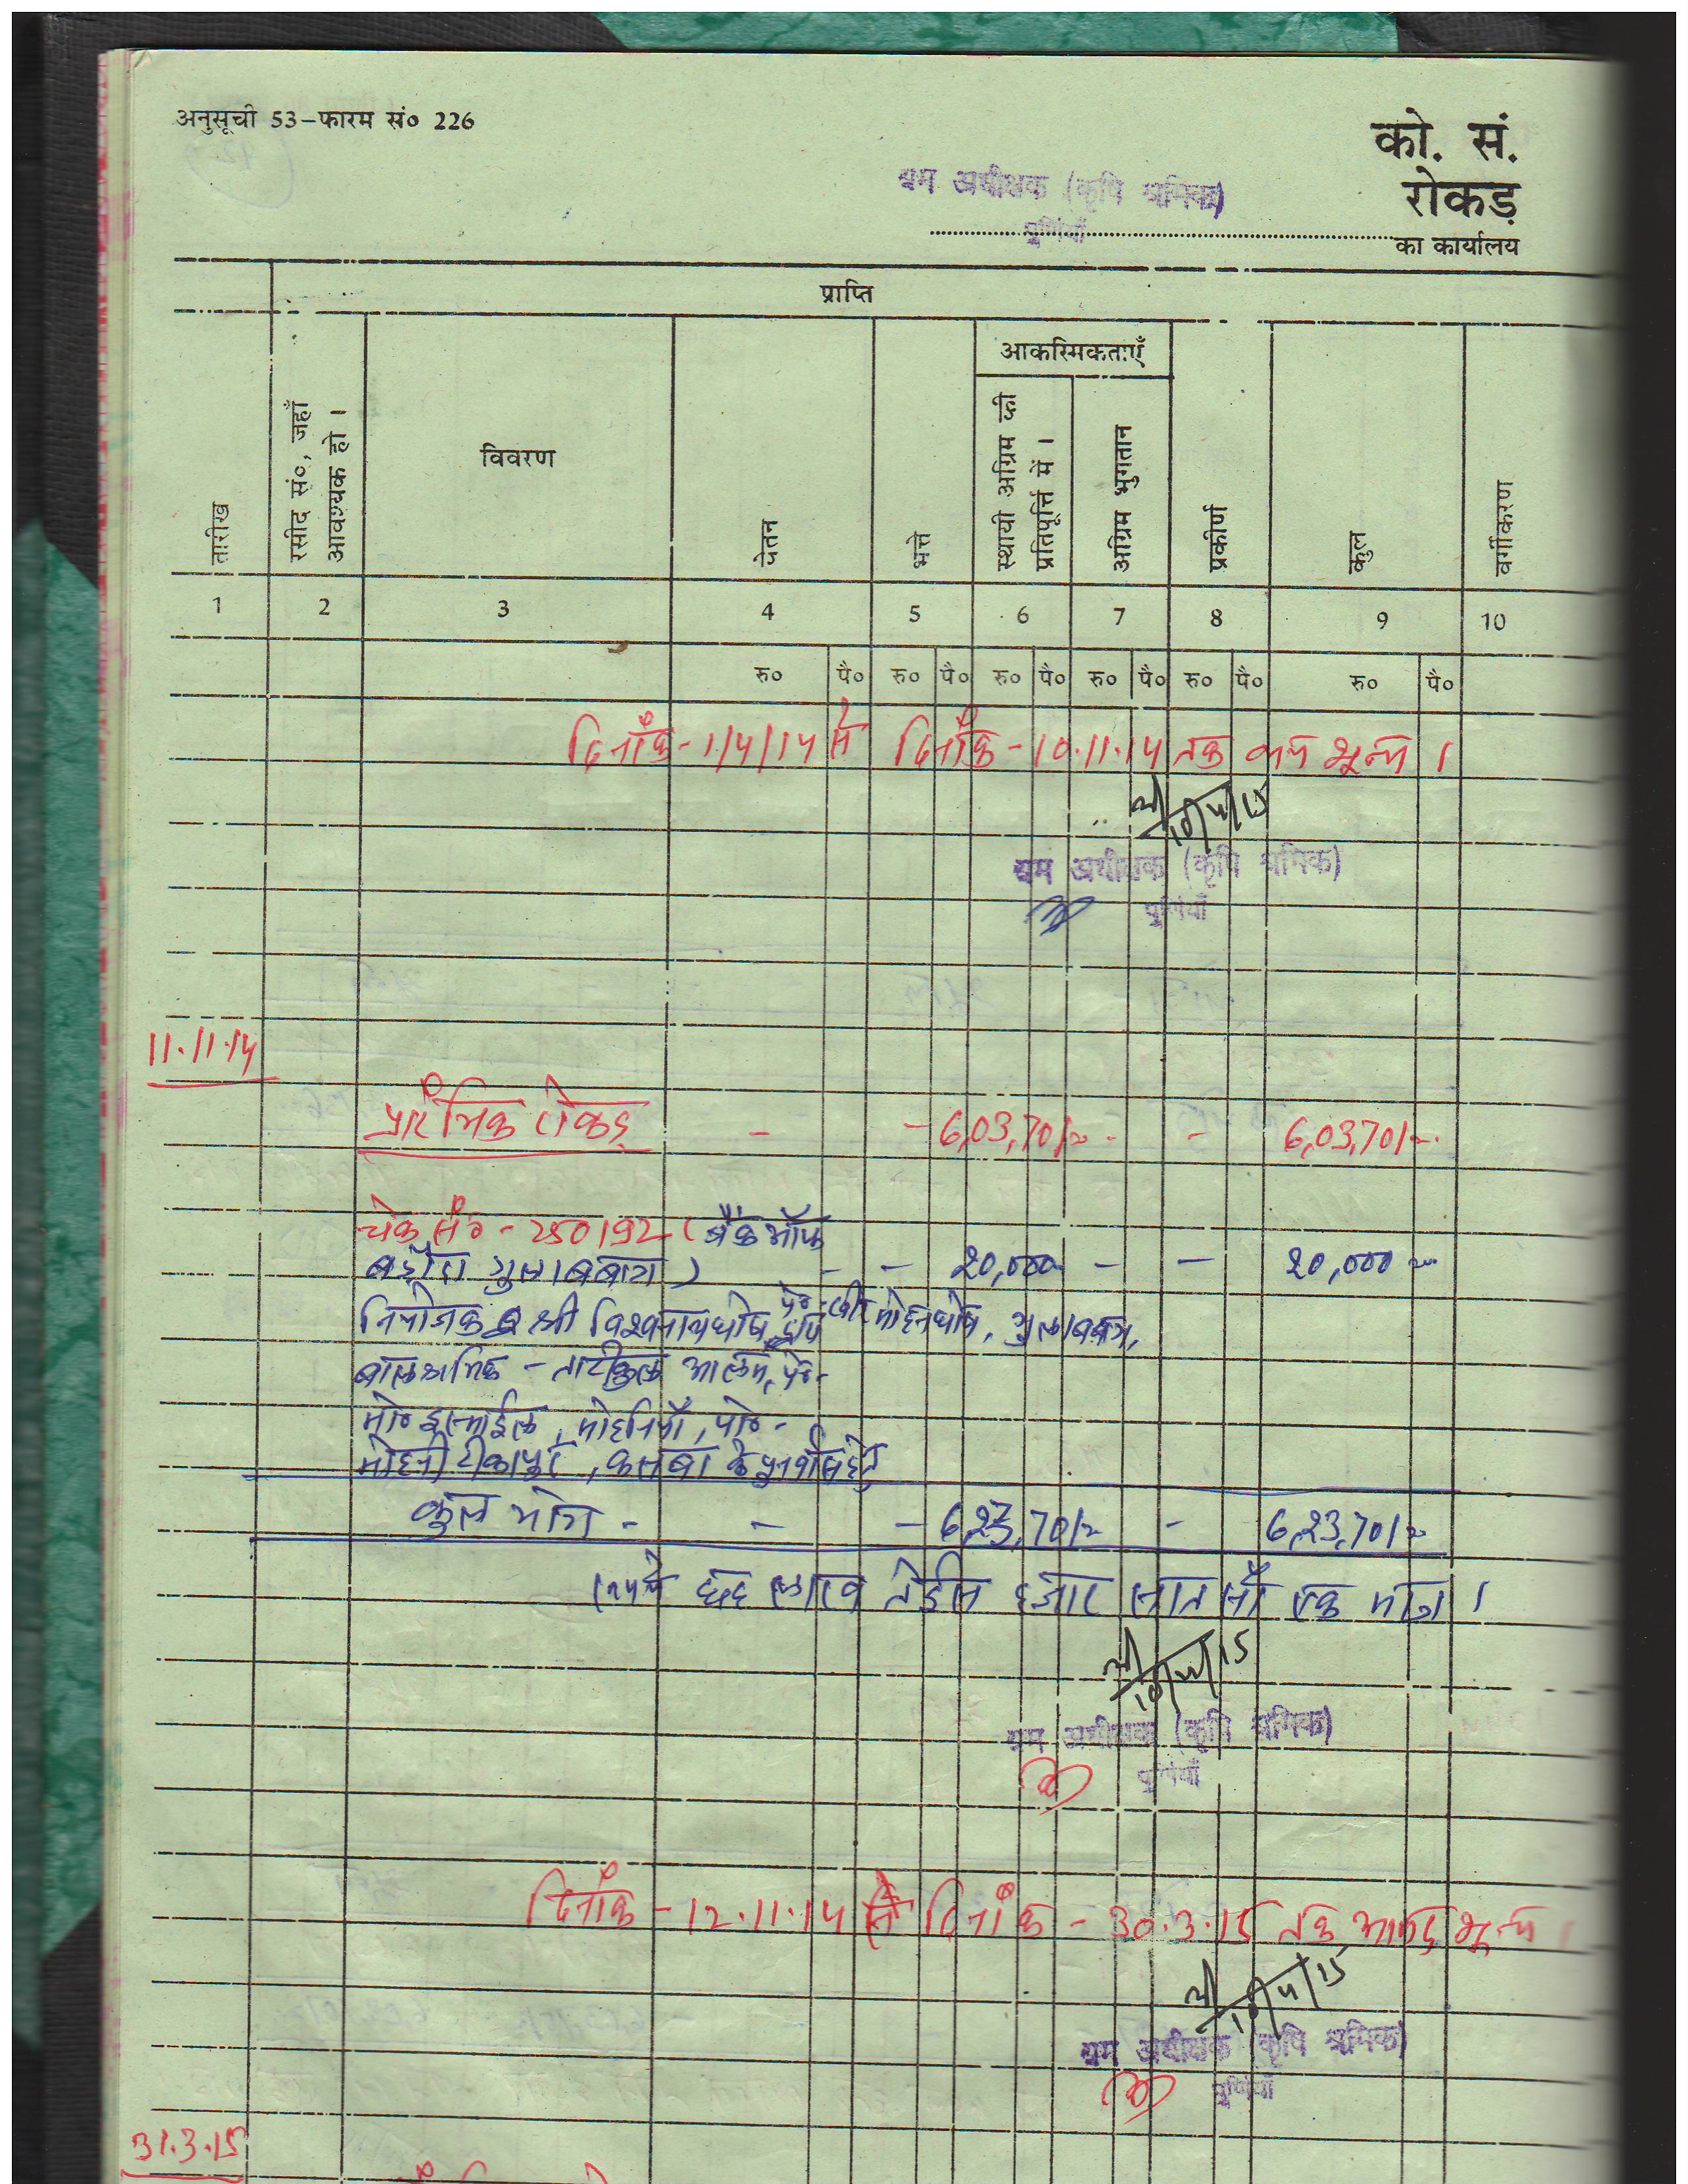 अनुसूची 53-फारम सं० 226
को. सं.
रोकड़
श्रम अधीक्षक (कृषि श्रमिक)
पूर्णियाँ
का कार्यालय
प्राप्ति
आकस्मिकताएँ
तारीख
रसीद सं०, जहाँ आवश्यक हो ।
विवरण
वेतन
भत्ते
स्थायी अग्रिम की प्रतिपूर्त्ति में ।
अग्रिम भुगतान
प्रकीर्ण
कुल
वर्गीकरण
1 2 3 4 5 6 7 8 9 10
रु० पै० रु० पै० रु० पै० रु० पै० रु० पै० रु० पै०
दिनाँक - 1/4/14 से दिनाँक - 10.11.14 तक शून्य ।
10/4/15
श्रम अधीक्षक (कृषि श्रमिक)
पूर्णियाँ
11.11.14
प्रारंभिक रोकड़ - - 6,03,701/- - - 6,03,701/-
चेक सं० - 250192 (बैंक ऑफ
बड़ौदा गुलाबबाग) - - 20,000 - - 20,000
नियोजक श्री विश्वनाथ घोष, मोहन घोष, गुलाबबाग,
बालश्रमिक - आलम, पे०-
मो० इस्माईल, मोहनियाँ, पो०-
कसबा के पुनर्वास हेतु
कुल योग - - - 6,23,701/- - 6,23,701/-
रूपये छह लाख तेईस हजार सात सौ एक मात्र ।
10/4/15
श्रम अधीक्षक (कृषि श्रमिक)
पूर्णियाँ
दिनांक - 12.11.14 से दिनांक - 30.3.15 तक आमद शून्य ।
10/4/15
श्रम अधीक्षक (कृषि श्रमिक)
पूर्णियाँ
31.3.15